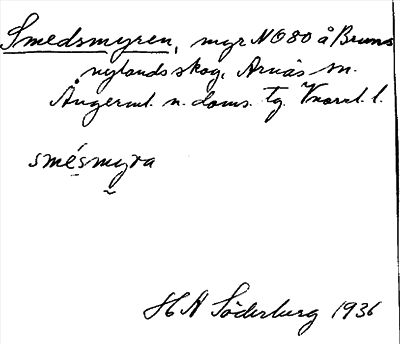 Smedsmyren, myr NO80 å Bruns
nylands skog, Arnäs sn.
Ångerml. n. doms. tg. Vnorrl. l.
smésmyra
H A Söderburg 1936